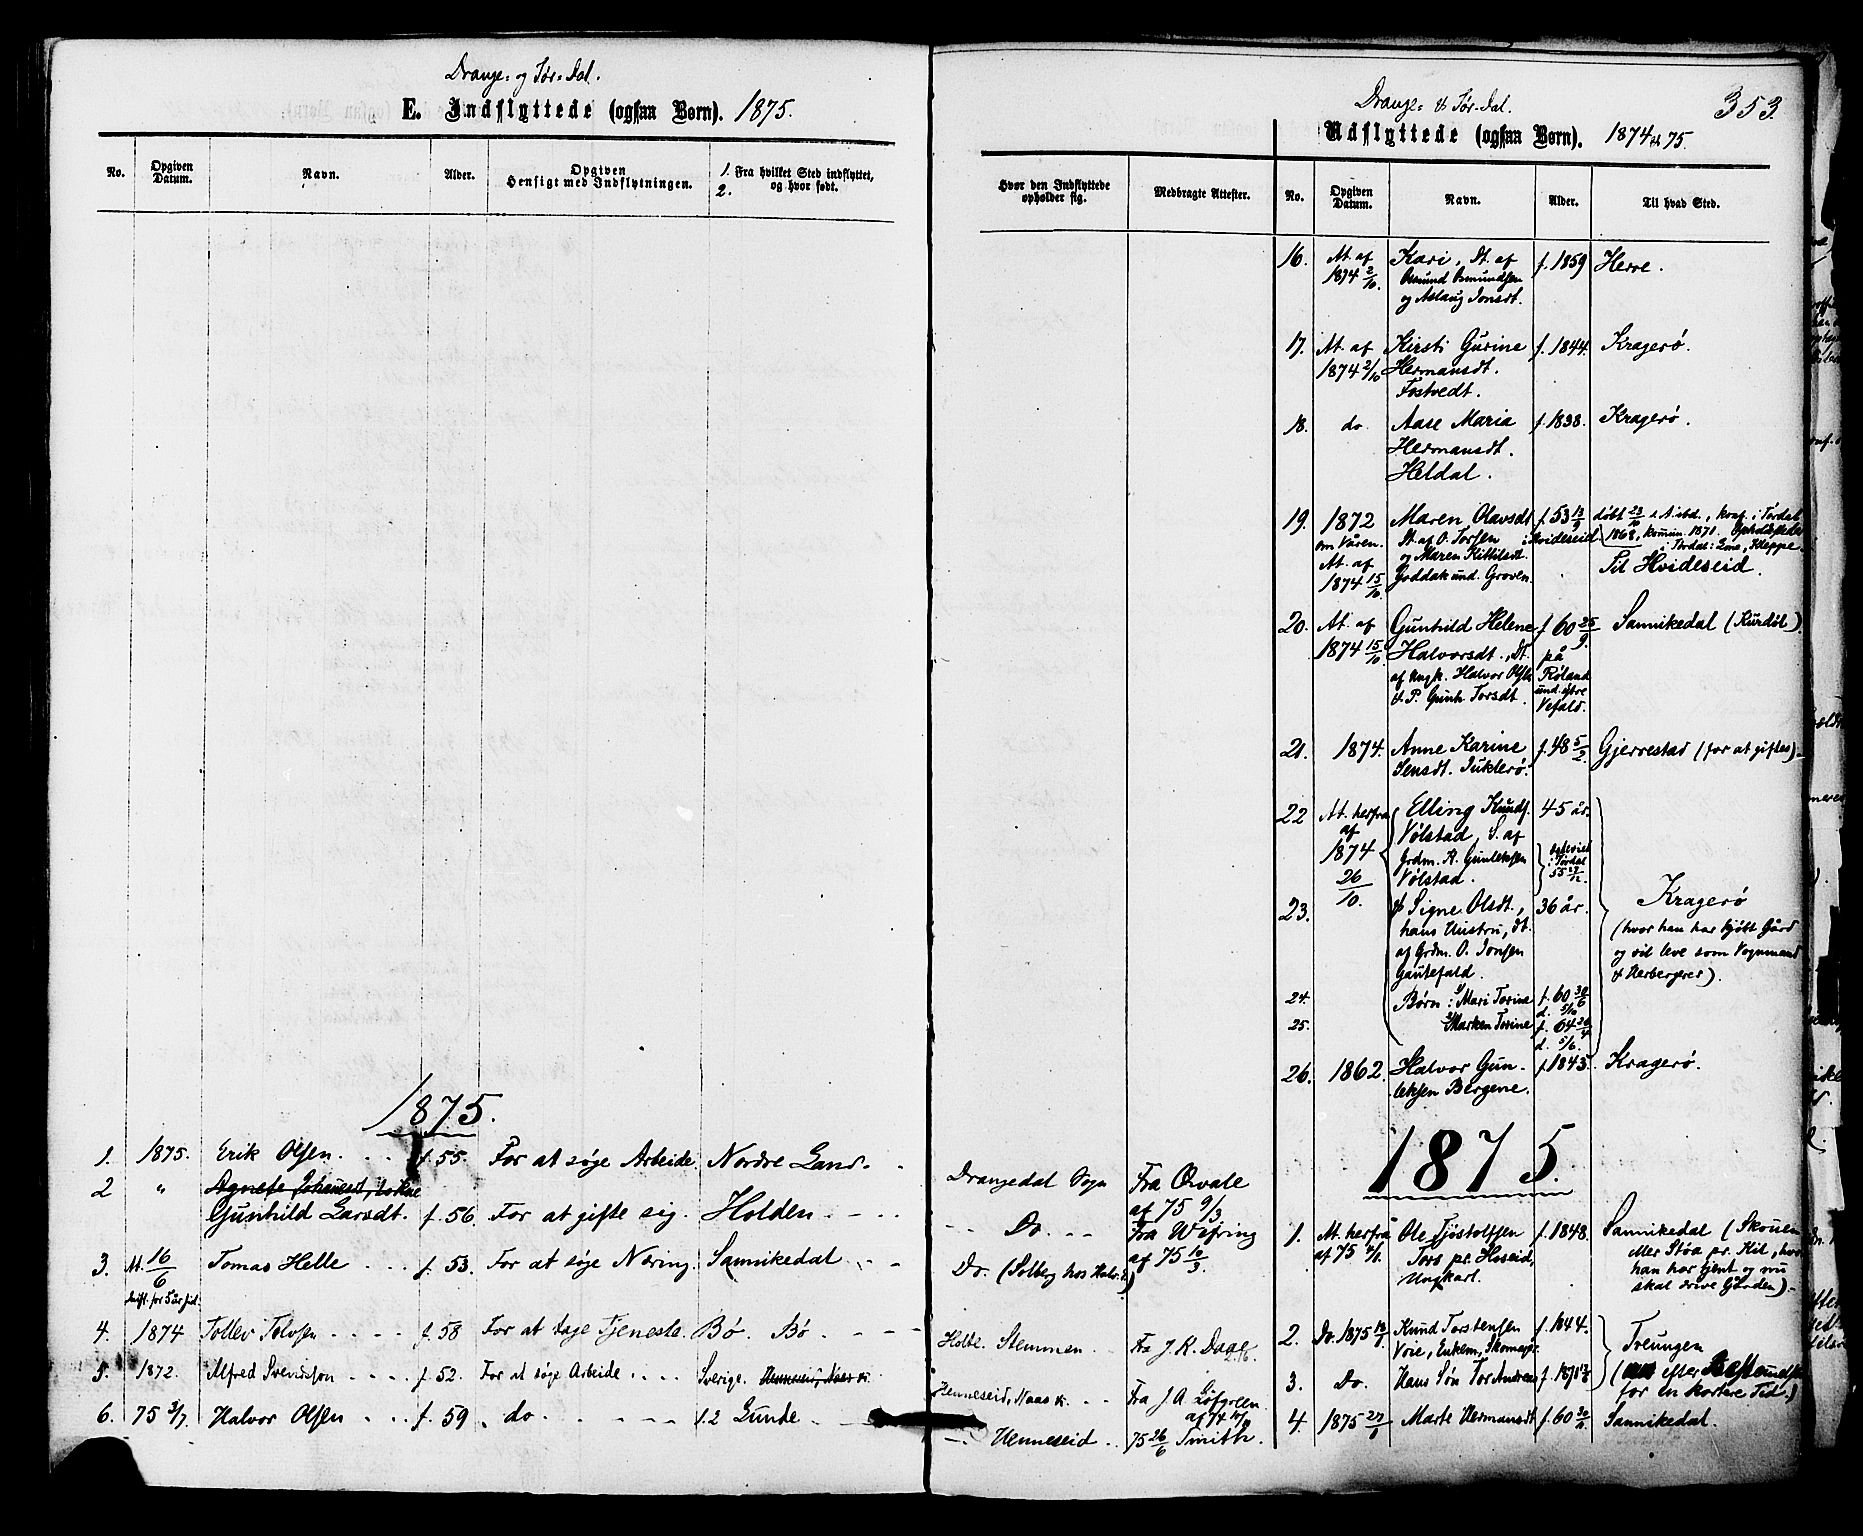 Drange- og Tør-dal.
E. Indflyttede (ogsaa Børn). 1875.
No. Opgiven Datum. Navn. Alder. Opgiven Hensigt med Indflytningen. 1. Fra hvilket Sted indflyttet, 2. og hvor født.
1875.
1. 1875. Erik Olsen. f. 55. For at søge Arbeide Nordre Land.
2 " Agnete
Gunhild Larsdt. f. 56. For at gifte sig. Holden.
3. At. 16/6 Tomas Helle f. 53. For at søge Næring. Sannikedal
4. 1874 Tollev Tolvsen f. 58 For at tage Tjeneste. Bø. Bø.
5. 1872. Alfred Svensson f. 52. For at søge Arbeide Sverige.
6. 75 3/7. Halvor Olsen f. 59. do 1.2 Lunde
353
Drange- & Tør-dal.
Udflyttede (ogsaa Børn). 1874 & 75.
Hvor den Indflyttede opholder sig. Medbragte Attester. No. Opgiven Datum. Navn. Alder. Til hvad Sted.
16. At. af Kari, Dt. af f. 1859 Herre.
1874 2/10. Osmund Osmundsen
og Aslaug Jonsdt.
17. At. af Kirsti Gurine f. 1844. Kragerø.
1874 2/10 Hermansdt.
Tostvedt.
18. do Aase Maria f. 1838. Kragerø.
Hermansdt.
Heldal.
19. 1872 Maren Olavsdt f. 53 13/9 døbt 23/10 konf. i Tørdal
om Våren. Dt. af O. Torsen i Hvideseid. 1868, kommun. 1871. Opholdssteder
At. af og Maren Kittilsdt. i Tørdal: Kleppe.
1874 15/10 Groven. Til Hvideseid.
20. At. af Gunhild Helene f. 60 25/9. Sannikedal (Kurdøl).
1874 15/10 Halvorsdt., Dt. på
af Ungk. Halvor Olsen Røland
& P. Gunh. Torsdt. und. østre
Vefald.
21. 1874. Anne Karine f. 48 5/2 Gjerrestad (for at giftes)
Jensdt.
22 At. herfra Elling Knuds. 45 år.
af Vølstad, S. af
1874 Grdm. K. Gunleksen
26/10. Vølstad.
23. & Signe Olsdt., 36 år. Kragerø
hans Hustru, Dt. (hvor han har kjøbt Gård
af Grdm. O. Jonsen og vil leve som Vognmand
Gautefald. & Herbergerer).
24. Børn: Mari Torine f. 60 30/6
25. Marken Torine f. 64 26/4
26. 1862. Halvor Gun- f. 1843. Kragerø.
leksen Bergene.
1875.
Drangedal Sogn Fra Orvale
af 75 9/3
Do. Fra Wefring
af 75 16/3
Do. (Solberg hos Halv. )
Holte. Stemmen Fra J. K. Daae
Henneseid, Naas v. Fra J. A. Løfgreen
Henneseid 75 26/6 Smith.
1. At. herfra Ole Tjøstolfsen f. 1848. Sannikedal (Skouen
af 75 4/1. Tors pr. Heseid, eller Støa pr. Kil, hvor
Ungkarl. han har tjent og nu
skal drive Gården)
2. Do. 1875 18/1 Knud Torstensen f. 1844. Treungen
Voie, Enkem., Skomager.
3. Do. Hans Søn Tor Andreas f. 1871
for en kortere Tid.)
4. 1875 27/1 Marte Hermansdt f. 60 30/11 Sannikedal.